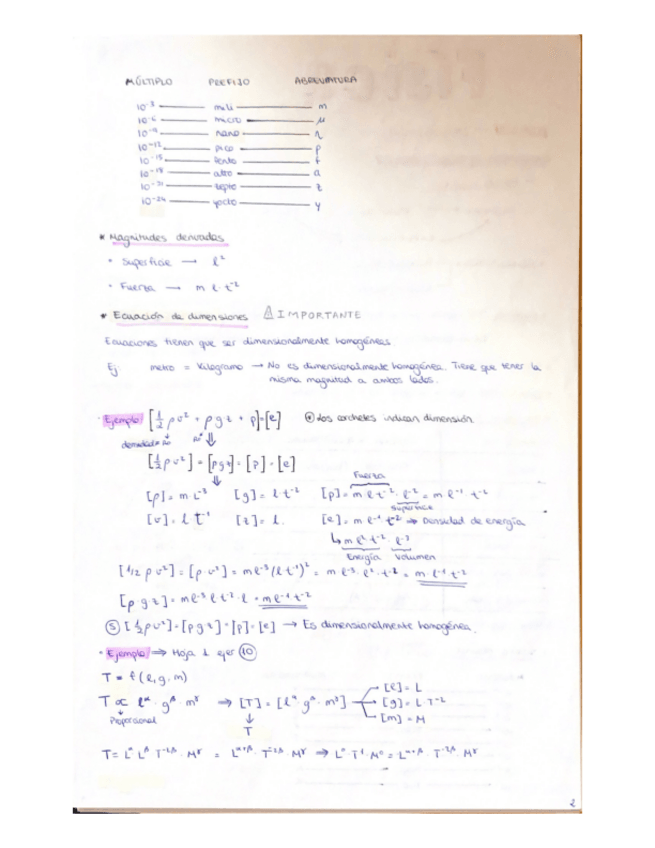 MÚLTIPLO PREFIJO ABREVIATURA
10⁻³ mili m
10⁻⁶ micro μ
10⁻⁹ nano n
10⁻¹² pico p
10⁻¹⁵ femto f
10⁻¹⁸ atto a
10⁻²¹ zepto z
10⁻²⁴ yocto y
* Magnitudes derivadas
• Superficie → l²
• Fuerza → m l · t⁻²
* Ecuación de dimensiones ⚠ IMPORTANTE
Ecuaciones tienen que ser dimensionalmente homogéneas
Ej metro = Kilogramo → No es dimensionalmente homogénea. Tiene que tener la
misma magnitud a ambos lados.
· Ejemplo [½ ρv² + ρgz + p]=[e] * Los corchetes indican dimensión
densidad ⇓
[½ρv²] = [ρgz] = [p] = [e]
⇓ Fuerza
[ρ] = m L⁻³ [g] = l t⁻² [p] = m l t⁻² · l⁻² = m l⁻¹ t⁻²
superficie
[v] = l t⁻¹ [z] = l. [e] = m l⁻¹ t⁻² ⇒ Densidad de energía
↳ m l² t⁻² · l⁻³
Energía Volumen
[1/2 ρv²] = [ρ·v²] = m l⁻³ (l t⁻¹)² = m l⁻³ · l² · t⁻² = m l⁻¹ t⁻²
[ρ·g z] = m l⁻³ l t⁻² · l = m l⁻¹ t⁻²
[½ρv²] = [ρgz] = [p] = [e] → Es dimensionalmente homogénea.
· Ejemplo ⇒ Hoja 1 ejer 10
T = f (l, g, m)
T ∝ l^α · g^β · m^γ → [T] = [l^α · g^β · m^γ] [l] = L
[g] = L · T⁻²
[m] = M
Proporcional T
T = L^α L^β T^-2β · M^γ = L^α+β · T^-2β · M^γ ⇒ L⁰ T¹ M⁰ = L^α+β · T^-2β · M^γ
2